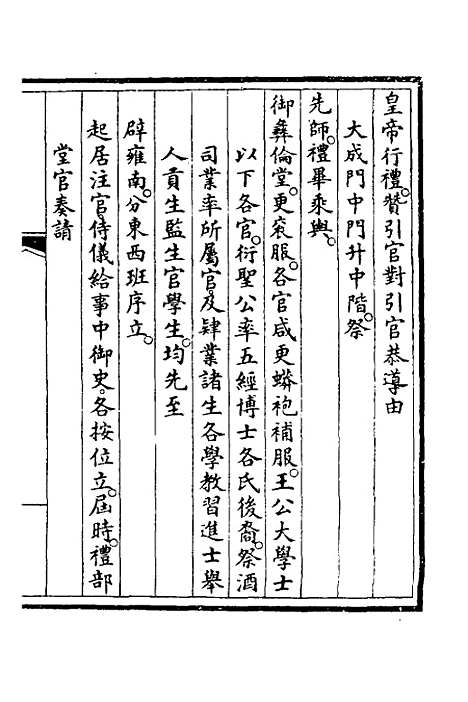 皇帝行禮。贊引官對引官恭導由
大成門中門升中階。祭
先師。禮畢乘輿。
御彝倫堂。更衮服。各官咸更蟒袍補服。王公大學士
以下各官。衍聖公率五經博士各氏後裔。祭酒
司業率所屬官。及肄業諸生各學教習進士舉
人貢生監生官學生。均先至
辟雍南。分東西班序立。
起居注官。侍儀給事中御史。各按位立。屆時。禮部
堂官奏請